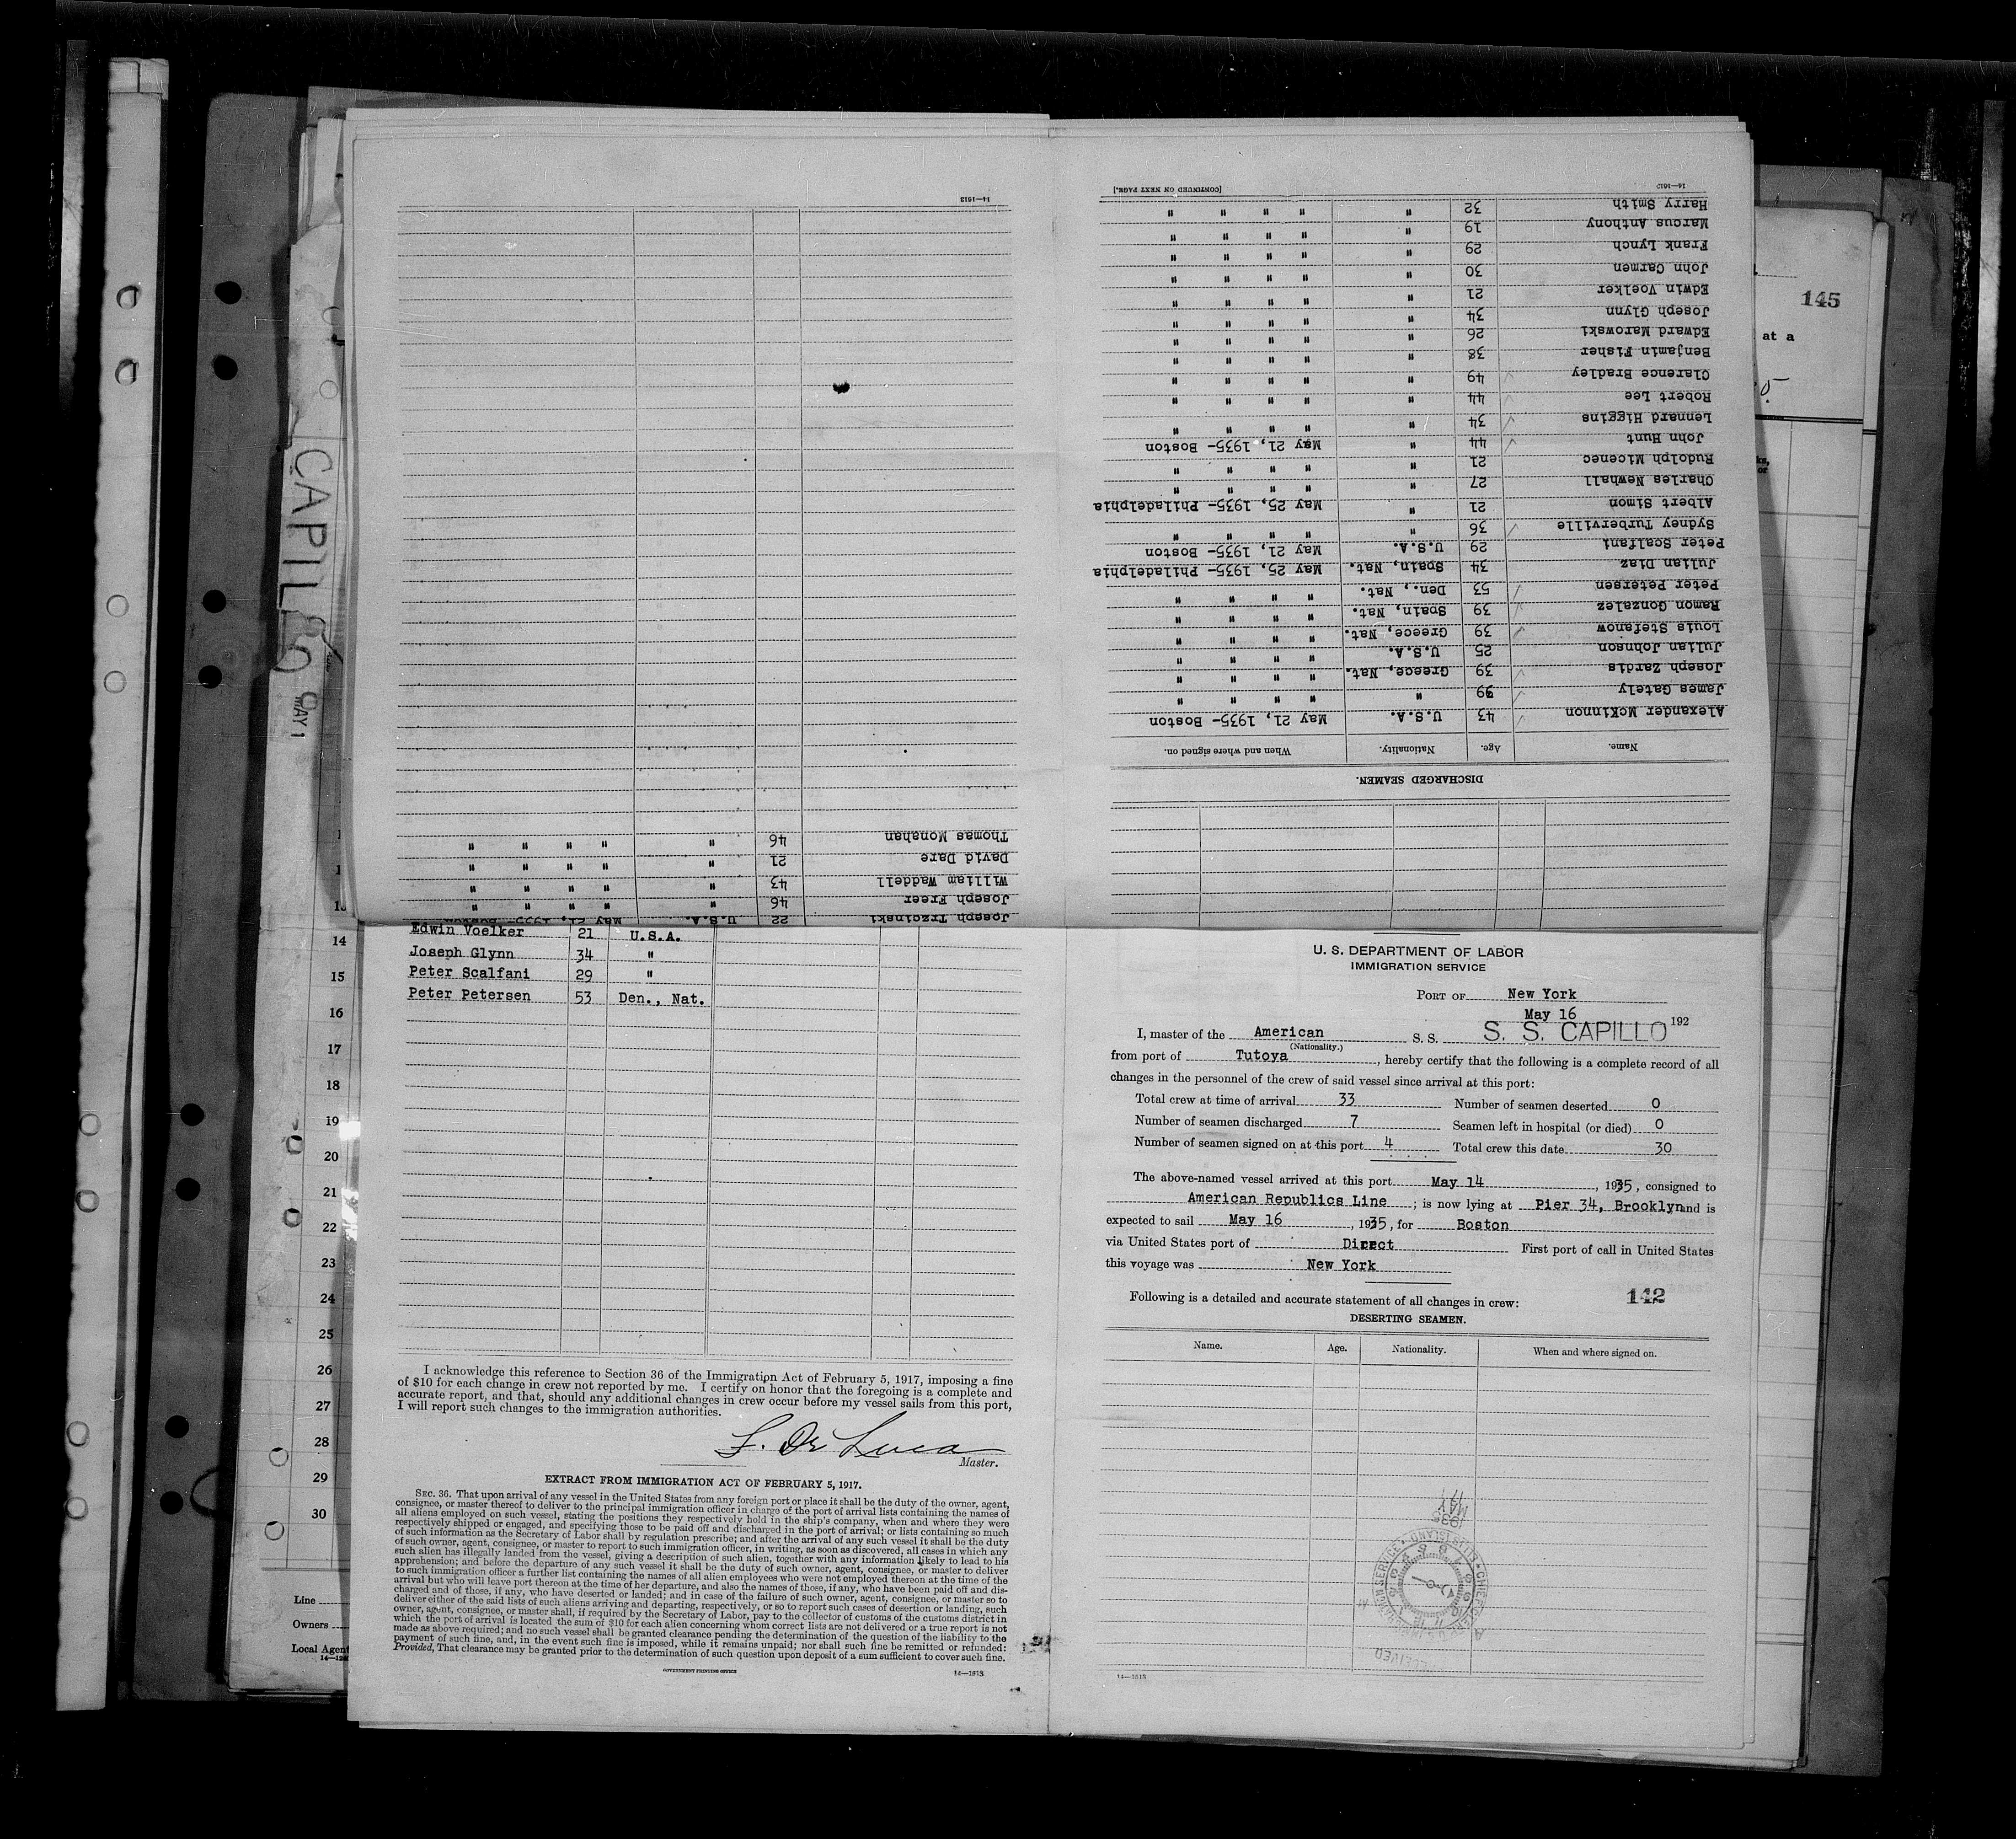 14—1613
Joseph Trzcinski 22 U.S.A. May 21, 1935- Boston
Joseph Freer 46 " " " " "
William Waddell 43 " " " " "
David Dare 21 " " " " "
Thomas Monahan 46 " " " " "
DISCHARGED SEAMEN.
Name. Age. Nationality. When and where signed on.
Alexander McKinnon 43 U.S.A. May 21, 1935- Boston
James Gately 39 " " " " "
Joseph Zardis 39 Greece, Nat. " " " "
Julian Johnson 25 U.S.A. " " " "
Louis Stefanow 39 Greece, Nat. " " " "
Ramon Gonzalez 39 Spain, Nat. " " " "
Peter Petersen 53 Den., Nat. " " " "
Julian Diaz 34 Spain, Nat. May 25, 1935- Philadelphia
Peter Scalfani 29 U.S.A. May 21, 1935- Boston
Sydney Turberville 36 " " " " "
Albert Simon 21 " May 25, 1935- Philadelphia
Charles Newhall 27 " " " " "
Rudolph Micenec 21 " " " " "
John Hunt 44 " May 21, 1935- Boston
Lennard Higgins 34 " " " " "
Robert Lee 44 " " " " "
Clarence Bradley 49 " " " " "
Benjamin Fisher 38 " " " " "
Edward Marowski 26 " " " " "
Joseph Glynn 34 " " " " "
Edwin Voelker 21 " " " " "
John Carmen 30 " " " " "
Frank Lynch 29 " " " " "
Marcus Anthony 19 " " " " "
Harry Smith 32 " " " " "
14—1613 [CONTINUED ON NEXT PAGE.]
145
at a
CAPILLO
MAY 1
14
15
16
17
18
19
20
21
22
23
24
25
26
27
28
29
30
Line
Owners
Local Agent
Edwin Voelker 21 U.S.A.
Joseph Glynn 34 "
Peter Scalfani 29 "
Peter Petersen 53 Den., Nat.
I acknowledge this reference to Section 36 of the Immigration Act of February 5, 1917, imposing a fine
of $10 for each change in crew not reported by me. I certify on honor that the foregoing is a complete and
accurate report, and that, should any additional changes in crew occur before my vessel sails from this port,
I will report such changes to the immigration authorities.
L. De Luca
Master.
EXTRACT FROM IMMIGRATION ACT OF FEBRUARY 5, 1917.
SEC. 36. That upon arrival of any vessel in the United States from any foreign port or place it shall be the duty of the owner, agent,
consignee, or master thereof to deliver to the principal immigration officer in charge of the port of arrival lists containing the names of
all aliens employed on such vessel, stating the positions they respectively hold in the ship's company, when and where they were
respectively shipped or engaged, and specifying those to be paid off and discharged in the port of arrival; or lists containing so much
of such information as the Secretary of Labor shall by regulation prescribe; and after the arrival of any such vessel it shall be the duty
of such owner, agent, consignee, or master to report to such immigration officer, in writing, as soon as discovered, all cases in which any
such alien has illegally landed from the vessel, giving a description of such alien, together with any information likely to lead to his
apprehension; and before the departure of any such vessel it shall be the duty of such owner, agent, consignee, or master to deliver
to such immigration officer a further list containing the names of all alien employees who were not employed thereon at the time of the
arrival but who will leave port thereon at the time of her departure, and also the names of those, if any, who have been paid off and dis-
charged and of those, if any, who have deserted or landed; and in case of the failure of such owner, agent, consignee, or master so to
deliver either of the said lists of such aliens arriving and departing, respectively, or so to report such cases of desertion or landing, such
owner, agent, consignee, or master shall, if required by the Secretary of Labor, pay to the collector of customs of the customs district in
which the port of arrival is located the sum of $10 for each alien concerning whom correct lists are not delivered or a true report is not
made as above required; and no such vessel shall be granted clearance pending the determination of the question of the liability to the
payment of such fine, and, in the event such fine is imposed, while it remains unpaid; nor shall such fine be remitted or refunded:
Provided, That clearance may be granted prior to the determination of such question upon deposit of a sum sufficient to cover such fine.
GOVERNMENT PRINTING OFFICE 14—1613
U. S. DEPARTMENT OF LABOR
IMMIGRATION SERVICE
PORT OF New York
May 16
I, master of the American S. S. S. S. CAPILLO 192
(Nationality.)
from port of Tutoya, hereby certify that the following is a complete record of all
changes in the personnel of the crew of said vessel since arrival at this port:
Total crew at time of arrival 33 Number of seamen deserted 0
Number of seamen discharged 7 Seamen left in hospital (or died) 0
Number of seamen signed on at this port 4 Total crew this date 30
The above-named vessel arrived at this port May 14, 1935, consigned to
American Republics Line; is now lying at Pier 34, Brooklyn and is
expected to sail May 16, 1935, for Boston
via United States port of Direct First port of call in United States
this voyage was New York
Following is a detailed and accurate statement of all changes in crew: 142
DESERTING SEAMEN.
Name. Age. Nationality. When and where signed on.
1935
MAY
17
14—1613